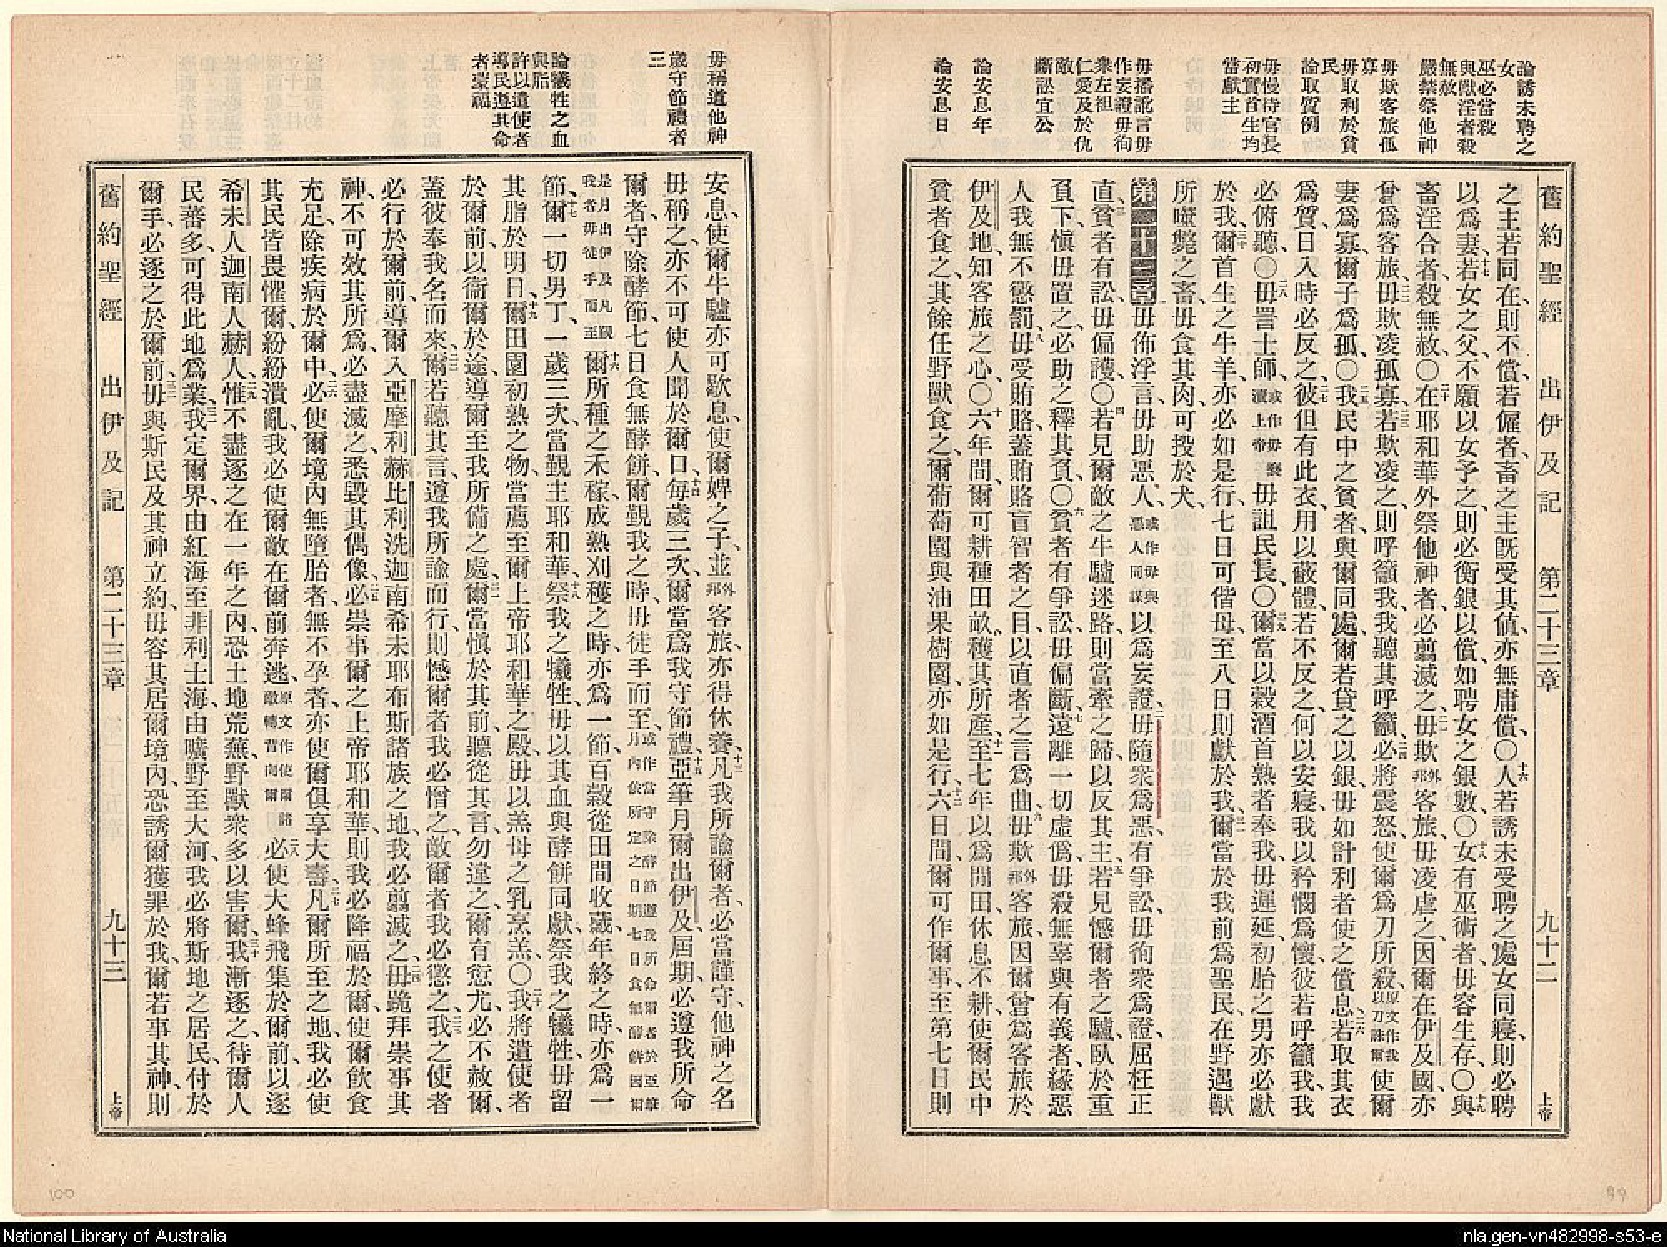 舊約聖經 出伊及記 第二十三章 九十二 上帝
論誘未聘之
女
巫必當殺
與獸淫者殺
無赦
嚴禁祭他神
毋欺客旅孤
寡
毋取利於貧
民
論取質例
毋慢待官長
初實首生均
當獻主
毋播訛言毋
作妄證毋徇
衆左袒
仁愛及於仇
敵
斷訟宜公
論安息年
論安息日
之主若同在、則不償、若僱者、畜之主旣受其値、亦無庸償、〇十六人若誘未受聘之處女同寢、則必聘
以爲妻、十七若女之父不願以女予之、則必衡銀以償、如聘女之銀數、〇十八女有巫術者、毋容生存、〇十九與
畜淫合者、殺無赦、〇二十在耶和華外祭他神者、必翦滅之、二一毋欺外邦客旅、毋凌虐之、因爾在伊及國、亦
曾爲客旅、二二毋欺凌孤寡、二三若欺凌之、則呼籲我、我聽其呼籲、二四必將震怒、使爾爲刀所殺、原文作我以刀誅爾使爾
妻爲寡、爾子爲孤、〇二五我民中之貧者、與爾同處、爾若貸之以銀、毋如計利者、使之償息、二六若取其衣
爲質、日入時必反之、二七彼但有此衣、用以蔽體、若不反之、何以安寢、我以矜憫爲懷、彼若呼籲我、我
必俯聽、〇二八毋詈士師、或作毋褻瀆上帝毋詛民長、〇二九爾當以穀酒首熟者奉我、毋遲延、初胎之男、亦必獻
於我、三十爾首生之牛羊、亦必如是行、七日可偕母、至八日則獻於我、三一爾當於我前爲聖民、在野遇獸
所噬斃之畜、毋食其肉、可投於犬、
第二十三章 毋佈浮言、毋助惡人、或作毋與惡人同謀以爲妄證、二毋隨衆爲惡、有爭訟、毋徇衆爲證、屈枉正
直、三貧者有訟、毋偏護、〇四若見爾敵之牛驢迷路、則當牽之歸、以反其主、五若見憾爾者之驢、臥於重
負下、愼毋置之、必助之釋其負、〇六貧者有爭訟、毋偏斷、七遠離一切虛僞、毋殺無辜與有義者、緣惡
人我無不懲罰、八毋受賄賂、蓋賄賂盲智者之目、以直者之言爲曲、九毋欺外邦客旅、因爾曾爲客旅於
伊及地、知客旅之心、〇十六年間、爾可耕種田畝、穫其所產、十一至七年以爲閒田、休息不耕、使爾民中
貧者食之、其餘任野獸食之、爾葡萄園與油果樹園、亦如是行、十二六日間、爾可作爾事、至第七日則
毋稱道他神
歲守節禮者
三
論犧牲之血
與脂
許以遣使者
導民遵其命
者蒙福
安息、使爾牛驢亦可歇息、使爾婢之子、並外邦客旅、亦得休養、十三凡我所諭爾者、必當謹守、他神之名、
毋稱之、亦不可使人聞於爾口、十四每歲三次、爾當爲我守節禮、十五亞筆月爾出伊及、屆期、必遵我所命
爾者、守除酵節、七日食無酵餅、爾覲我之時、毋徒手而至、或作當守除酵節遵我所命爾者於亞筆月內依所定之日期七日食無酵餅因爾
是月出伊及凡覲我者毋徒手而至十六爾所種之禾稼、成熟刈穫之時、亦爲一節、百穀從田間收藏、年終之時、亦爲一
節、十七爾一切男丁、一歲三次、當覲主耶和華、十八祭我之犧牲、毋以其血與酵餅同獻、祭我之犧牲、毋留
其脂於明日、十九爾田園初熟之物、當薦至爾上帝耶和華之殿、毋以羔母之乳烹羔、〇二十我將遣使者
於爾前、以衞爾於途、導爾至我所備之處、二一爾當愼於其前、聽從其言、勿違之、爾有愆尤、必不赦爾、
蓋彼奉我名而來、二二爾若聽其言、遵我所諭而行、則憾爾者我必憎之、敵爾者我必懲之、二三我之使者
必行於爾前、導爾入亞摩利赫比利洗迦南希未耶布斯諸族之地、我必翦滅之、二四毋跪拜崇事其
神、不可效其所爲、必盡滅之、悉毀其偶像、二五必崇事爾之上帝耶和華、則我必降福於爾、使爾飲食
充足、除疾病於爾中、二六必使爾境內、無墮胎者、無不孕者、亦使爾俱享大壽、二七凡爾所至之地、我必使
其民皆畏懼爾、紛紛潰亂、我必使爾敵在爾前奔逃、原文作使爾諸敵轉背向爾二八必使大蜂飛集於爾前、以逐
希未人迦南人赫人、二九惟不盡逐之在一年之內、恐土地荒蕪、野獸衆多以害爾、三十我漸逐之、待爾人
民蕃多、可得此地爲業、三一我定爾界、由紅海至非利士海、由曠野至大河、我必將斯地之居民、付於
爾手、必逐之於爾前、三二毋與斯民及其神立約、三三毋容其居爾境內、恐誘爾獲罪於我、爾若事其神、則
舊約聖經 出伊及記 第二十三章 九十三 上帝
100
99
National Library of Australia
nla.gen-vn482998-s53-e